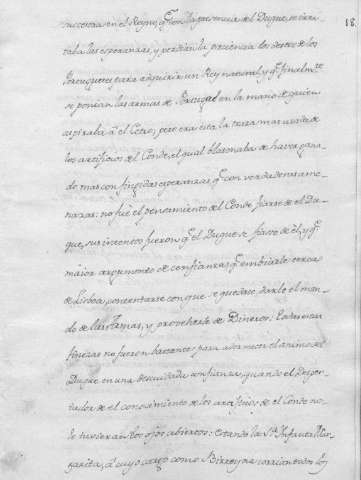 18.
sucesora en el Reyno, q̃ con la presencia del Duque, se irri-
taba las esperanzas, y perdian la prudencia los deseos de los
Portugueses para adquirir un Rey natural y q̃ finalm.te
se ponian las armas de Portugal en la mano de quien
aspiraba á el Cetro; pero era esta la traza mas usada de
los artificios del Conde, el qual blasonaba de haver gana-
do mas con fingidas esperanzas q̃ con verdaderas ame-
nazas: no fué el pensamiento del Conde fiarse de el Du-
que, sus intentos fueron q̃ el Duque se fiase de él, y q̃
maior argumento de confianza q̃ embiarle cerca
de Lisboa, contentarse con que se quedase darle el man-
do de las Armas, y proveherle de Dineros. Estas
finezas no fueron bastantes para adormecer el animo del
Duque en una descuidada confianza, quando el Desper-
tador de el conocimiento de los artificios de el Conde no
le tuviera los ojos abiertos: Estando la S.ra Infanta Mar-
garita, á cuyo cargo como Birreyna corrian todos los